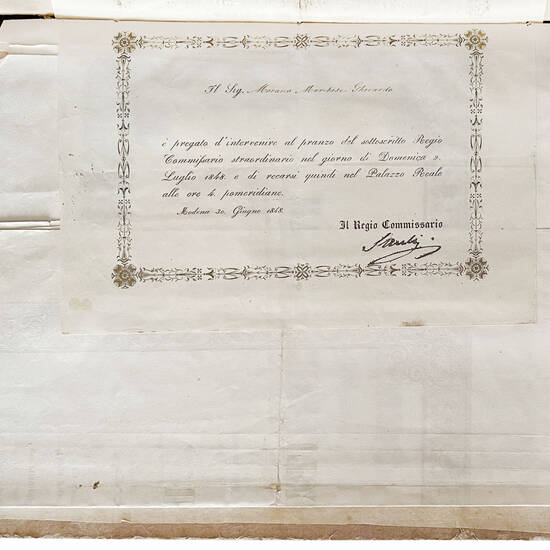 Il Sig. Morano Marchese Gherardo
è pregato d'intervenire al pranzo del sottoscritto Regio
Commissario straordinario nel giorno di Domenica 2.
Luglio 1848. e di recarsi quindi nel Palazzo Reale
alle ore 4. pomeridiane.
Modena 30. Giugno 1848.
Il Regio Commissario